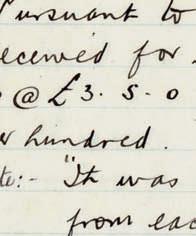 Pursuant to
eceived for
@ £3. 5. 0
r hundred.
te:- "It was
from eac